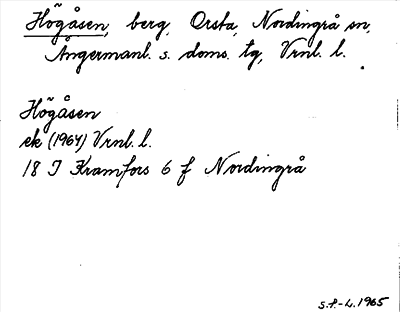 Högåsen, berg, Orsta, Nordingrå sn,
Ångermanl. s. doms. tg, Vrnl. l.
Högåsen
ek (1964) Vrnl. l.
18 I Kramfors 6 f Nordingrå
S.F.-L. 1965